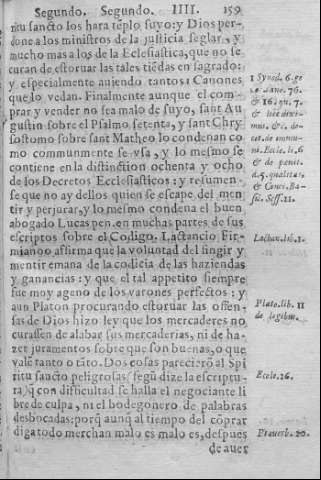 Segundo. Segundo. IIII. 159
ritu sancto los hara tēplo suyo: y Dios per-
done a los ministros de la justicia seglar, y
mucho mas a los de la Eclesiastica, que no se
curan de estoruar las tales tiēdas en sagrado:
y especialmente auiendo tantos 1 Canones
que lo vedan. Finalmente aunque el com
prar y vender no sea malo de suyo, sant Au
gustin sobre el Psalmo setenta, y sant Chry
sostomo sobre sant Matheo lo condenan co
mo communmente se vsa, y lo mesmo se
contiene en la distinction ochenta y ocho
de los Decretos Ecclesiasticos: y resumen-
se que no ay dellos quien se escape del men
tir y perjurar, y lo mesmo condena el buen
abogado Lucas pen. en muchas partes de sus
escriptos sobre el Codigo. Lactancio Fir-
miano affirma que la voluntad del fingir y
mentir emana de la codicia de las haziendas
y ganancias: y que el tal appetito siempre
fue muy ageno de los varones perfectos: y
aun Platon procurando estoruar las offen-
sas de Dios hizo ley que los mercaderes no
curassen de alabar sus mercaderias, ni de ha-
zer juramentos sobre que son buenas, o que
valē tanto o tāto. Dos cosas parecierō al Spi
ritu sancto peligrosas (segū dize la escriptu-
ra) q̄ con difficultad se halla el negociante li
bre de culpa, ni el bodegonero de palabras
desbocadas: porq̄ aunq̄ al tiempo del cōprar
diga todo merchan malo es malo es, despues
de auer
1 Synod. 6. ge
76.
& 16. qu. 7.
& hæc
mus, &c.
cet. de
ni. Eccle. li. 6
& de pœnit.
d. 5. qualitas,
& Conc. Ba-
sil. Sess. 11.
Lactan. lib. 1.
Plato. lib. 11
de legibus.
Eccle. 26.
Prouerb. 20.